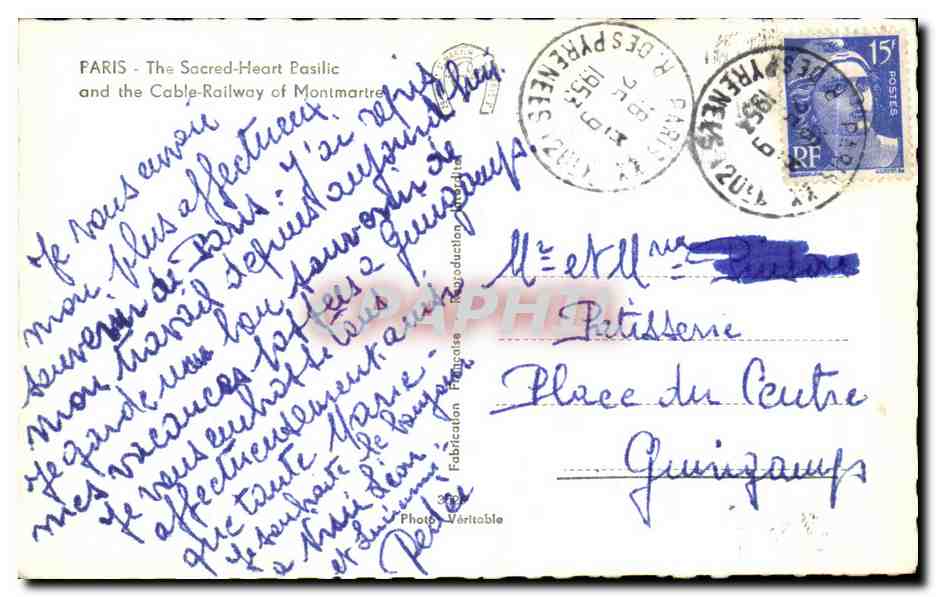 PARIS - The Sacred-Heart Basilic
and the Cable-Railway of Montmartre
Je vous envoie
mon plus affectueux
souvenir de Paris. J'ai repris
mon travail depuis aujourd'hui.
Je garde un bon souvenir de
mes vacances passées à Guingamp.
Je vous embrasse tous
affectueusement ainsi
que tante Marie
Je souhaite le bonjour
à Léon
et
Fabrication Française - Reproduction Interdite
Photo Véritable
PARIS XX
R. DES PYRENEES (248)
1953
PARIS XX
R. DES PYRENEES (248)
1953
15F
POSTES
RF
CPAPHIL
Mr et Mme
Pâtisserie
Place du Centre
Guingamp